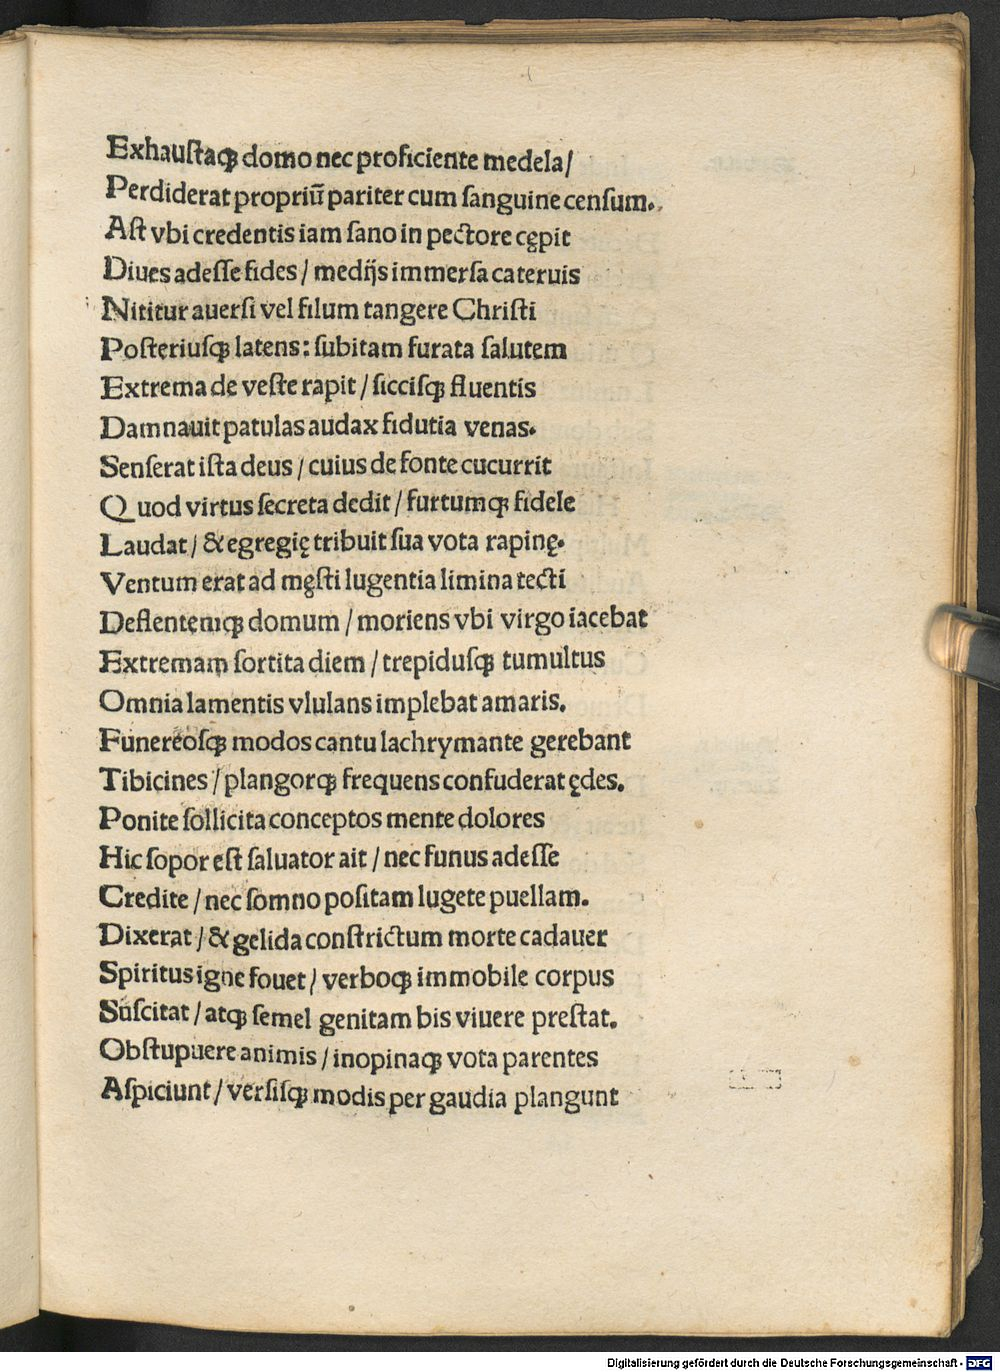 Exhauſtaqꝫ domo nec proficiente medela/
Perdiderat propriū pariter cum ſanguine cenſum.
Aſt vbi credentis iam ſano in pectore cępit
Diues adeſſe fides / medijs immerſa cateruis
Nititur auerſi vel filum tangere Chriſti
Poſteriuſqꝫ latens: ſubitam furata ſalutem
Extrema de veſte rapit / ſicciſqꝫ fluentis
Damnauit patulas audax fidutia venas.
Senſerat iſta deus / cuius de fonte cucurrit
Quod virtus ſecreta dedit / furtumqꝫ fidele
Laudat / & egregię tribuit ſua vota rapinę.
Ventum erat ad męſti lugentia limina tecti
Deflentemqꝫ domum / moriens vbi virgo iacebat
Extremam ſortita diem / trepiduſqꝫ tumultus
Omnia lamentis vlulans implebat amaris.
Funereoſqꝫ modos cantu lachrymante gerebant
Tibicines / plangorqꝫ frequens confuderat ędes.
Ponite ſollicita conceptos mente dolores
Hic ſopor eſt ſaluator ait / nec funus adeſſe
Credite / nec ſomno poſitam lugete puellam.
Dixerat / & gelida conſtrictum morte cadauer
Spiritus igne fouet / verboqꝫ immobile corpus
Suſcitat / atqꝫ ſemel genitam bis viuere preſtat.
Obſtupuere animis / inopinaqꝫ vota parentes
Aſpiciunt / verſiſqꝫ modis per gaudia plangunt
Digitalisierung gefördert durch die Deutsche Forschungsgemeinschaft - DFG